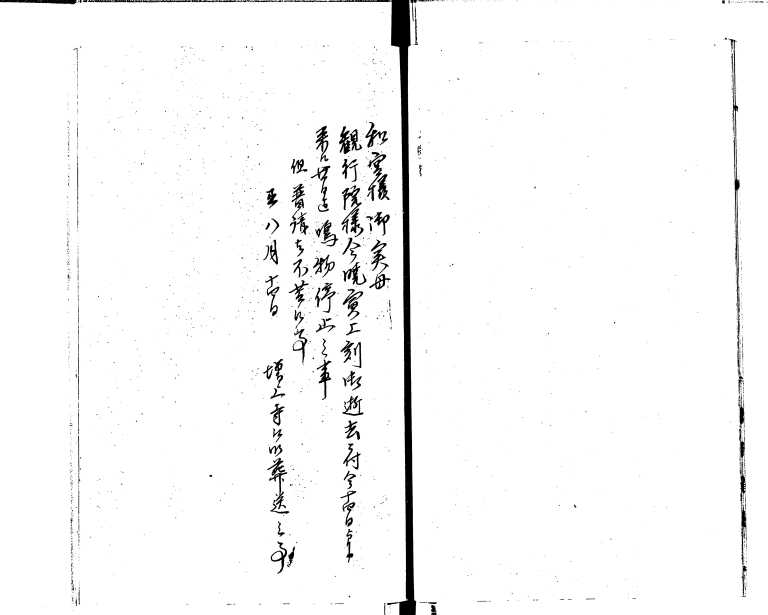 和宮様御実母
観行院様今暁寅上刻御逝去ニ付今十四日より
来ル廿日迄鳴物停止之事
但普請者不苦候事
丑八月十四日
増上寺江御葬送之事